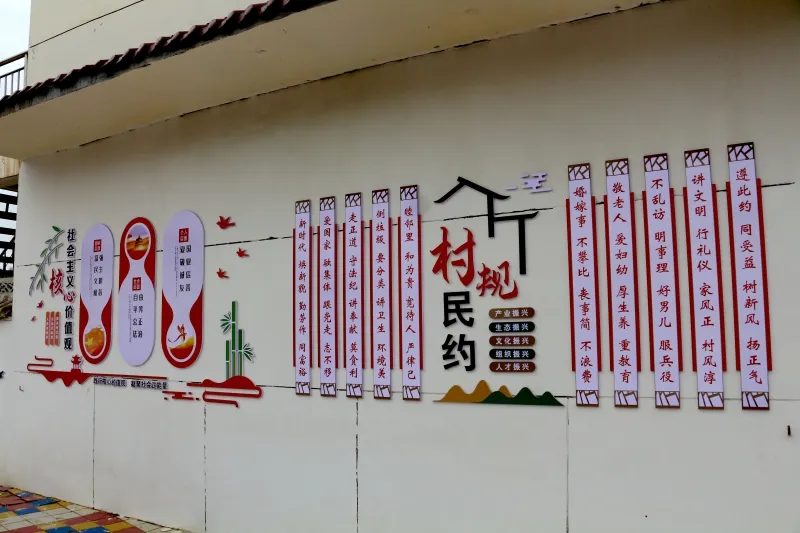 社会主义
核心价值观
富强 民主
文明 和谐
自由 平等
公正 法治
爱国 敬业
诚信 友善
新时代 焕新貌 勤劳作 同富裕
爱国家 融集体 跟党走 志不移
走正道 守法纪 讲奉献 莫贪利
倒垃圾 要分类 讲卫生 环境美
睦邻里 和为贵 宽待人 严律己
村规民约
产业振兴
生态振兴
文化振兴
组织振兴
人才振兴
婚嫁事 不攀比 丧事简 不浪费
敬老人 爱妇幼 厚生养 重教育
不乱访 明事理 好男儿 服兵役
讲文明 行礼仪 家风正 村风淳
遵此约 同受益 树新风 扬正气